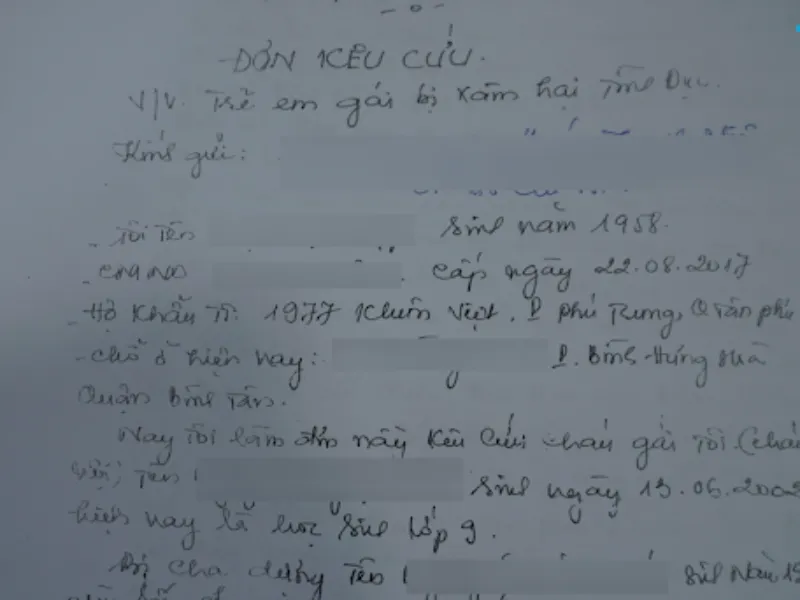 ĐƠN KÊU CỨU.
V/v. Trẻ em gái bị xâm hại Tình Dục.
Kính gửi:
- Tôi Tên sinh năm 1958.
- CMND cấp ngày 22.08.2017
- Hộ Khẩu TT: 1977 Khuôn Việt, P Phú Trung, Q Tân phú
- chỗ ở hiện nay: P. Bình Hưng Hoà
Quận Bình Tân.
Nay Tôi làm đơn này Kêu Cứu cháu gái Tôi (cháu
Tên sinh ngày 13.06.2002
hiện nay là học sinh lớp 9.
Bị cha dượng Tên sinh Năm 19